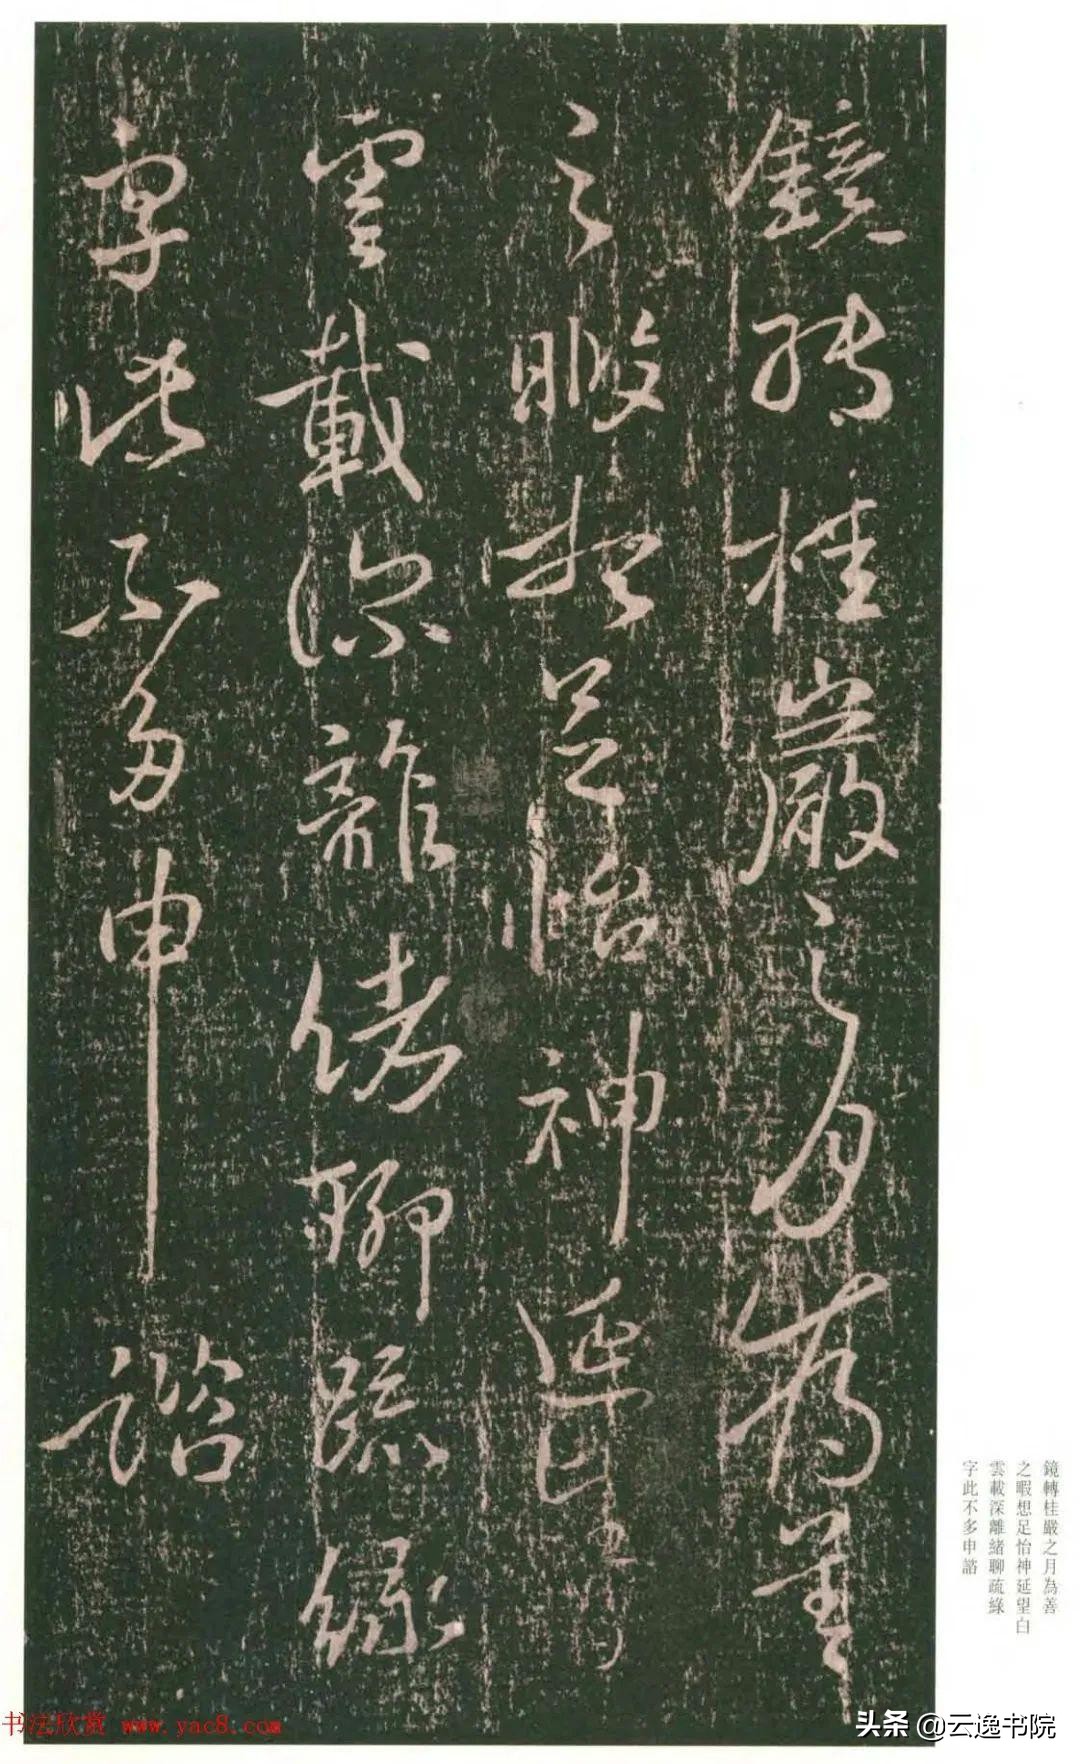 鏡轉桂巖之月為善
之暇想足怡神延望白
雲載深離緒聊疏綠
字此不多申諮
鏡轉桂嚴之月為善
之暇想足怡神延望白
雲載深離緒聊疏綠
字此不多申諮
书法欣赏 www.yac8.com
头条 @云逸书院